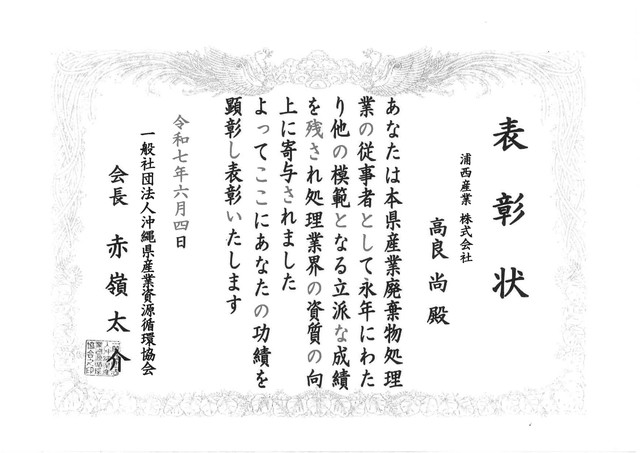 表彰状
浦西産業 株式会社
高良 尚 殿
あなたは本県産業廃棄物処理
業の従事者として永年にわた
り他の模範となる立派な成績
を残され処理業界の資質の向
上に寄与されました
よってここにあなたの功績を
顕彰し表彰いたします
令和七年六月四日
一般社団法人沖縄県産業資源循環協会
会長 赤嶺太介